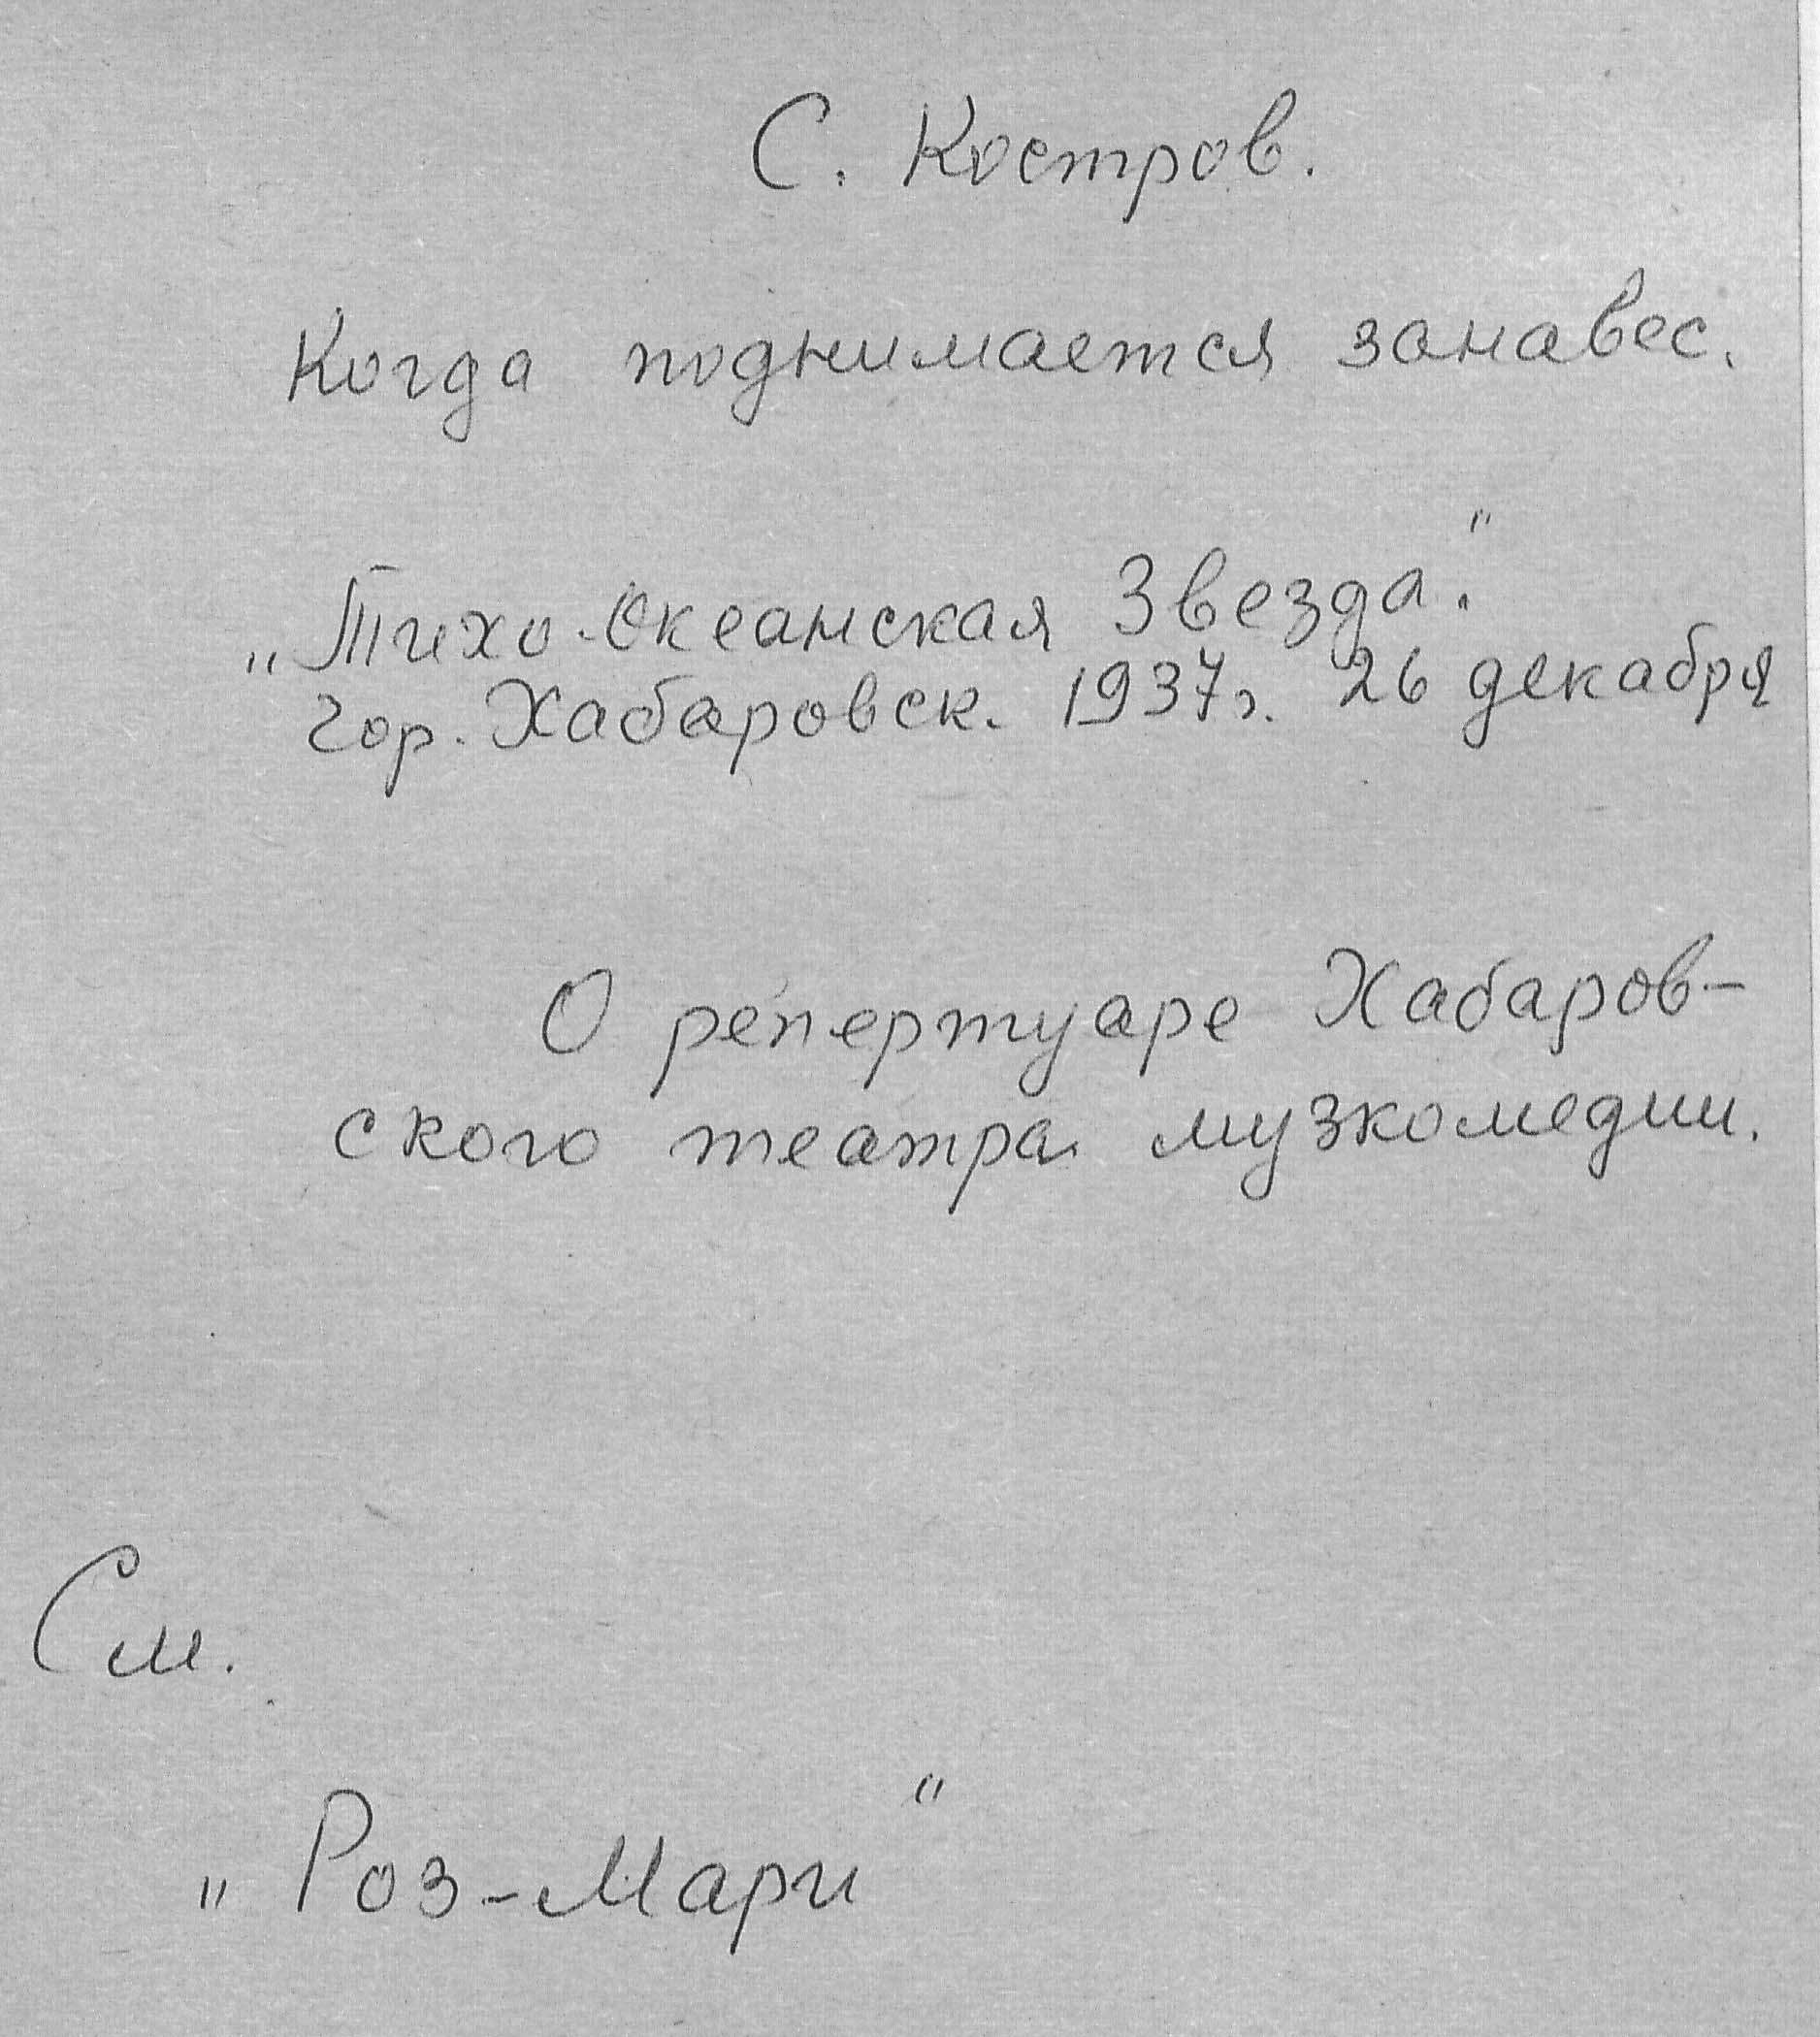 С. Костров.
Когда поднимается занавес.
„Тихо-Океанская Звезда."
гор. Хабаровск. 1937г. 26 декабря
О репертуаре Хабаров-
ского театра музкомедии.
См.
„Роз-Мари"